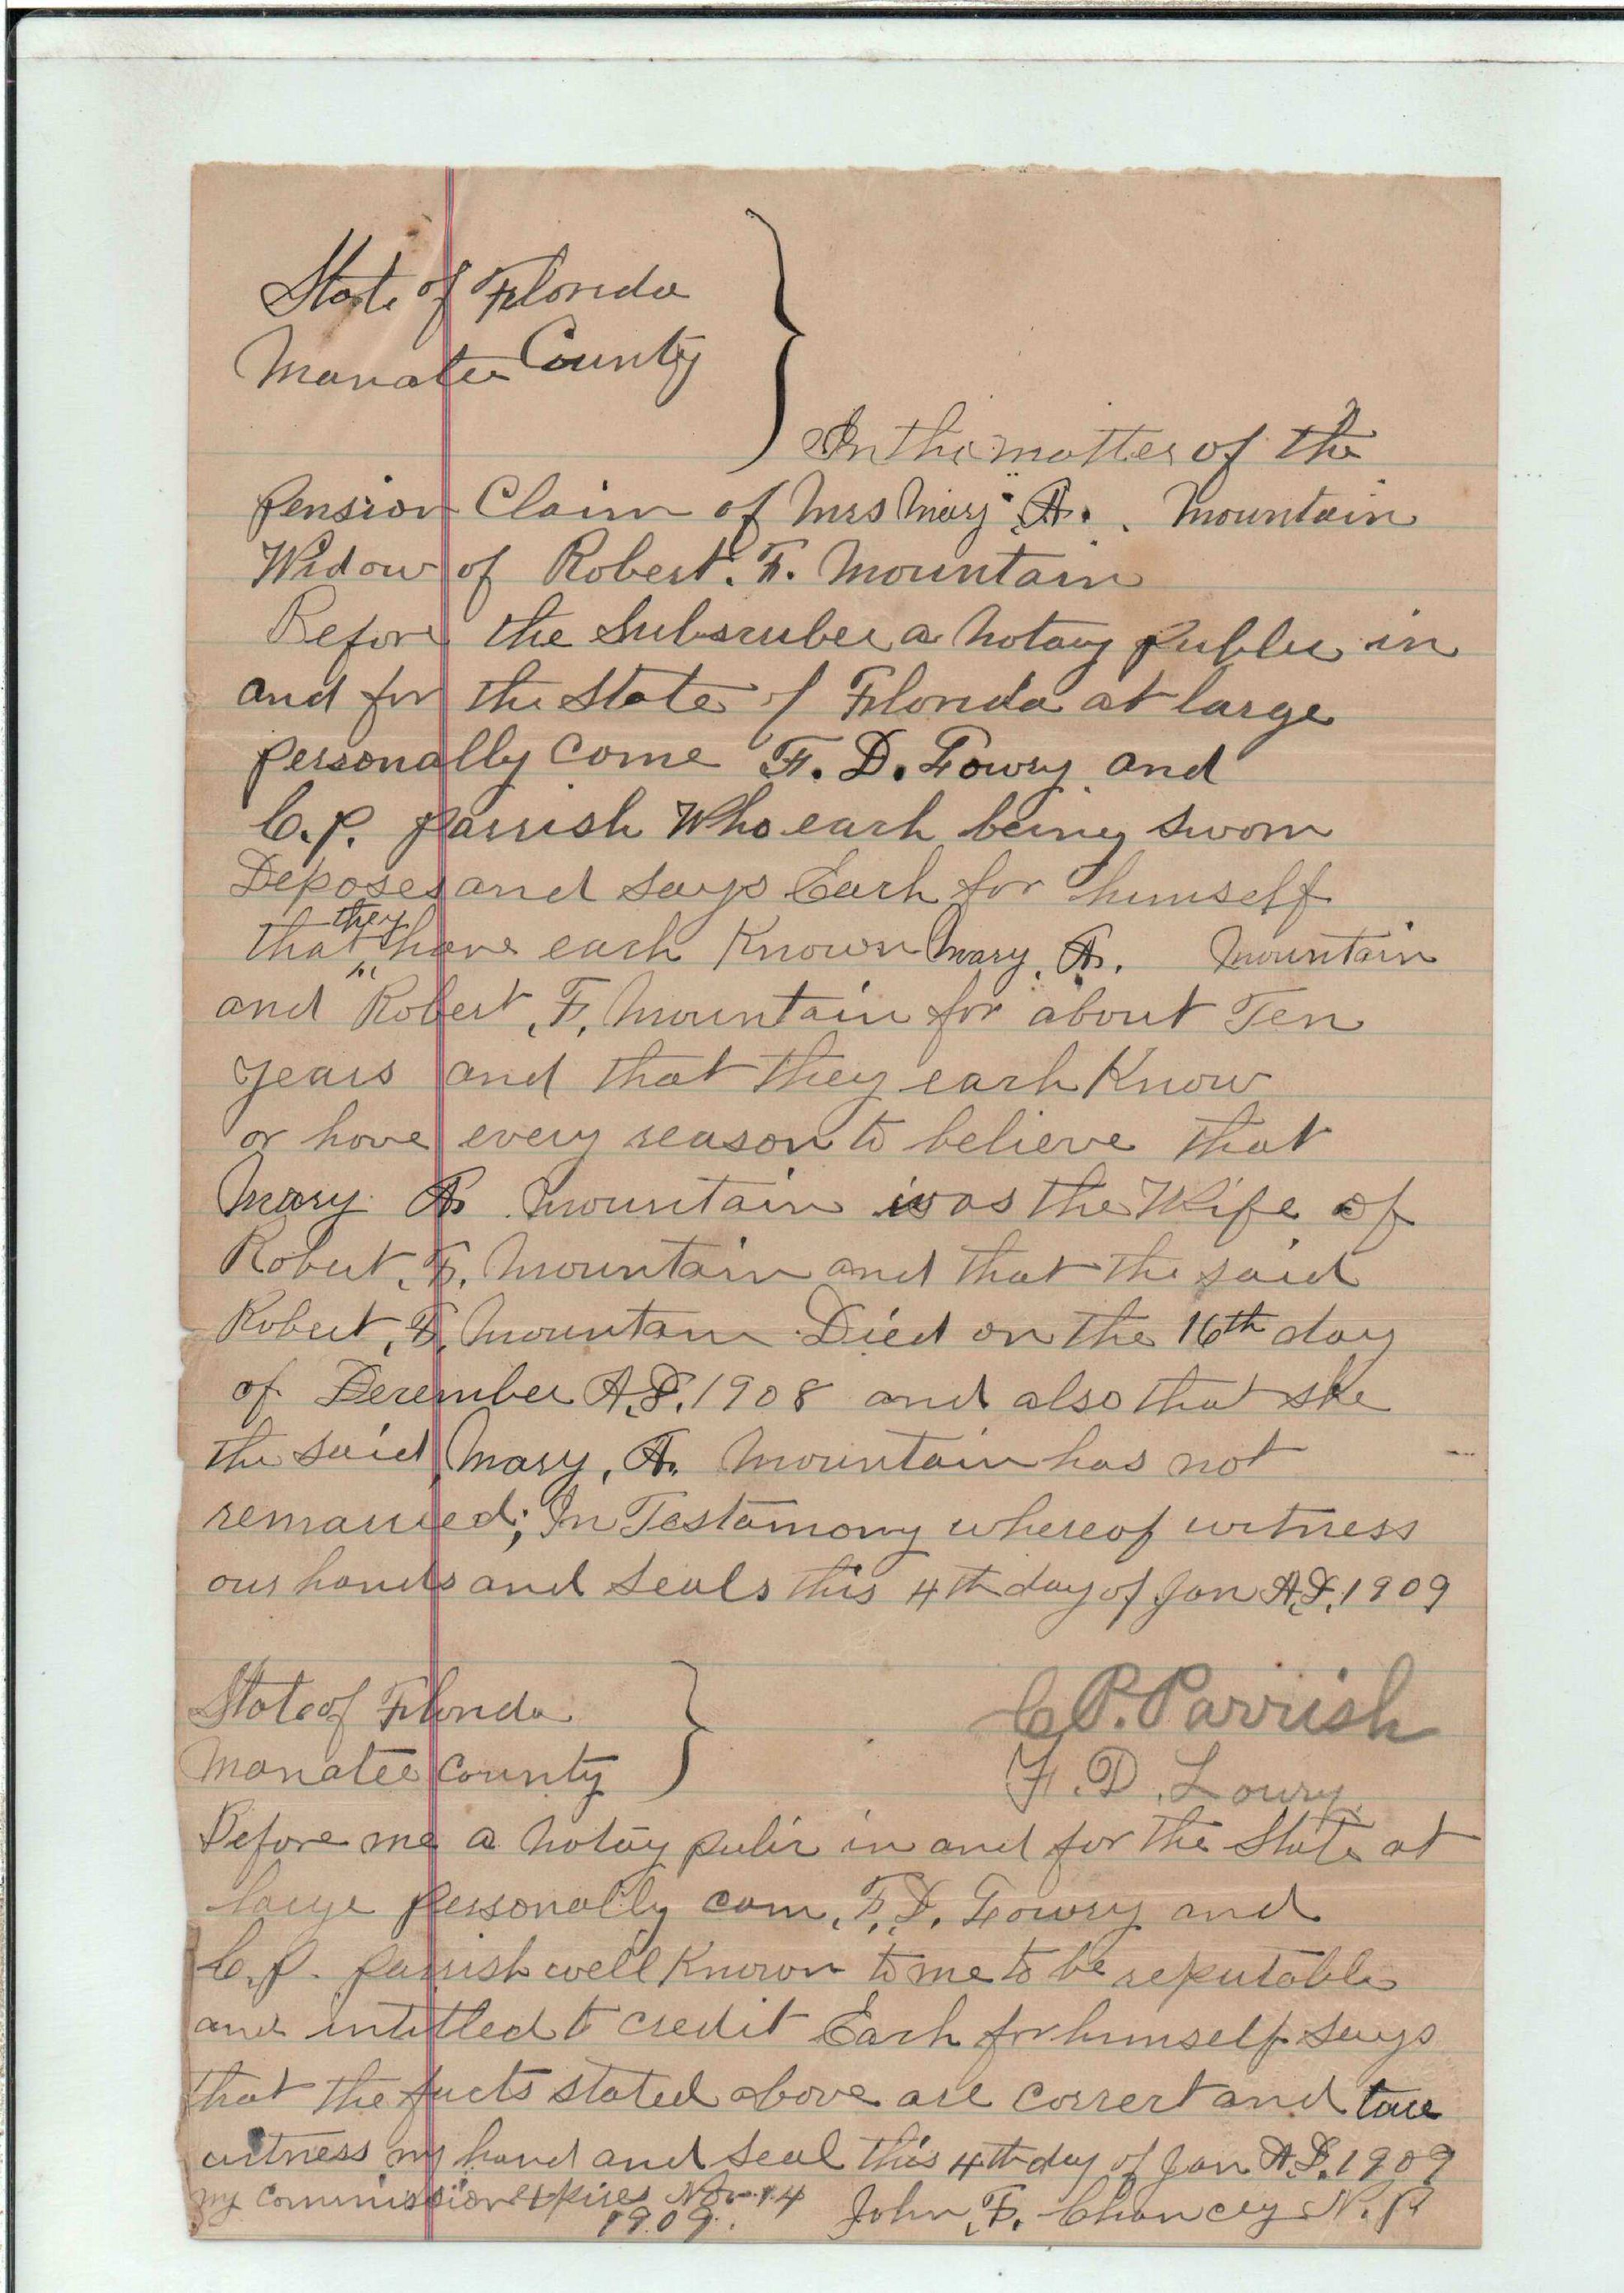 State of Florida
Manatee County
In the matter of the
pension Claim of Mrs Mary A. Mountain
Widow of Robert. F. Mountain
Before the Subscriber a Notary public in
and for the State of Florida at large
personally come F. D. Lowry and
C. P. parrish Who each being sworn
Deposes and says Each for himself
that they have each Known Mary. A. Mountain
and Robert. F. Mountain for about Ten
years and that they each Know
or have every reason to believe that
Mary A Mountain was the Wife of
Robert. F. Mountain and that the said
Robert. F. Mountain Died on the 16th day
of December A.D. 1908 and also that she
the said Mary. A. Mountain has not
remarried; In Testamony whereof witness
our hands and seals this 4th day of Jan A.D. 1909
C P. Parrish
F. D. Lowry
State of Florida
Manatee County
Before me a Notary pulic in and for the State at
large personally com. F. D. Lowry and
C. P. parrish well Known to me to be reputable
and intitled to credit Each for himself says
that the facts stated above are correct and true
witness my hand and seal this 4th day of Jan A.D. 1909
my commission Expires Nov. 14
1909.
John. F. Chancey N. P.